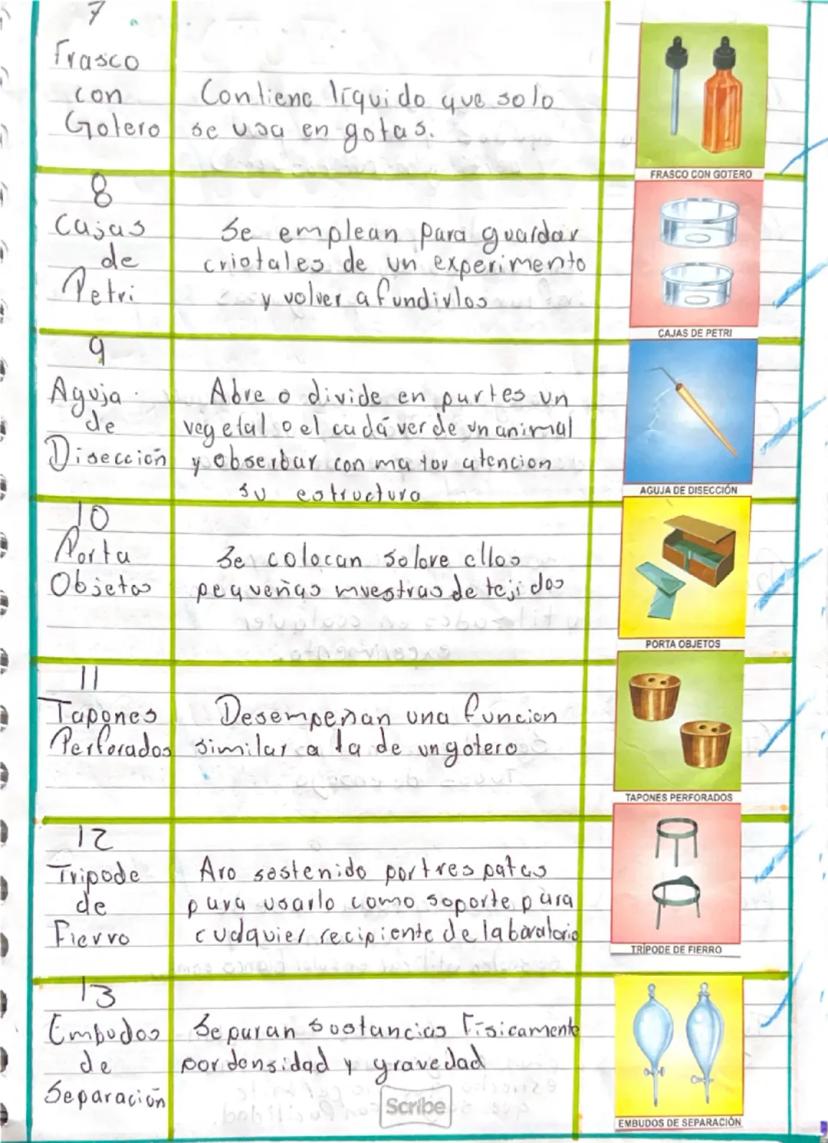 7
Frasco
con
Gotero
Contiene líquido que solo
se usa en gotas.
FRASCO CON GOTERO
8
Cajas
de
Petri
Se emplean para guardar
cristales de un experimento
y volver a fundirlos
CAJAS DE PETRI
9
Aguja
de
Disección
Abre o divide en partes un
vegetal o el cadáver de un animal
y obserbar con mator atencion
su estructura
AGUJA DE DISECCIÓN
10
Porta
Objetos
Se colocan solore ellos
pequeñas muestras de tejidos
PORTA OBJETOS
11
Tapones
Perforados
Desempeñan una funcion
similar a la de un gotero
TAPONES PERFORADOS
12
Tripode
de
Fierro
Aro sostenido por tres patas
para usarlo como soporte para
cualquier recipiente de laboratorio
TRÍPODE DE FIERRO
13
Embudos
de
Separación
Separan sustancias Físicamente
por densidad y gravedad
EMBUDOS DE SEPARACIÓN
Scribe